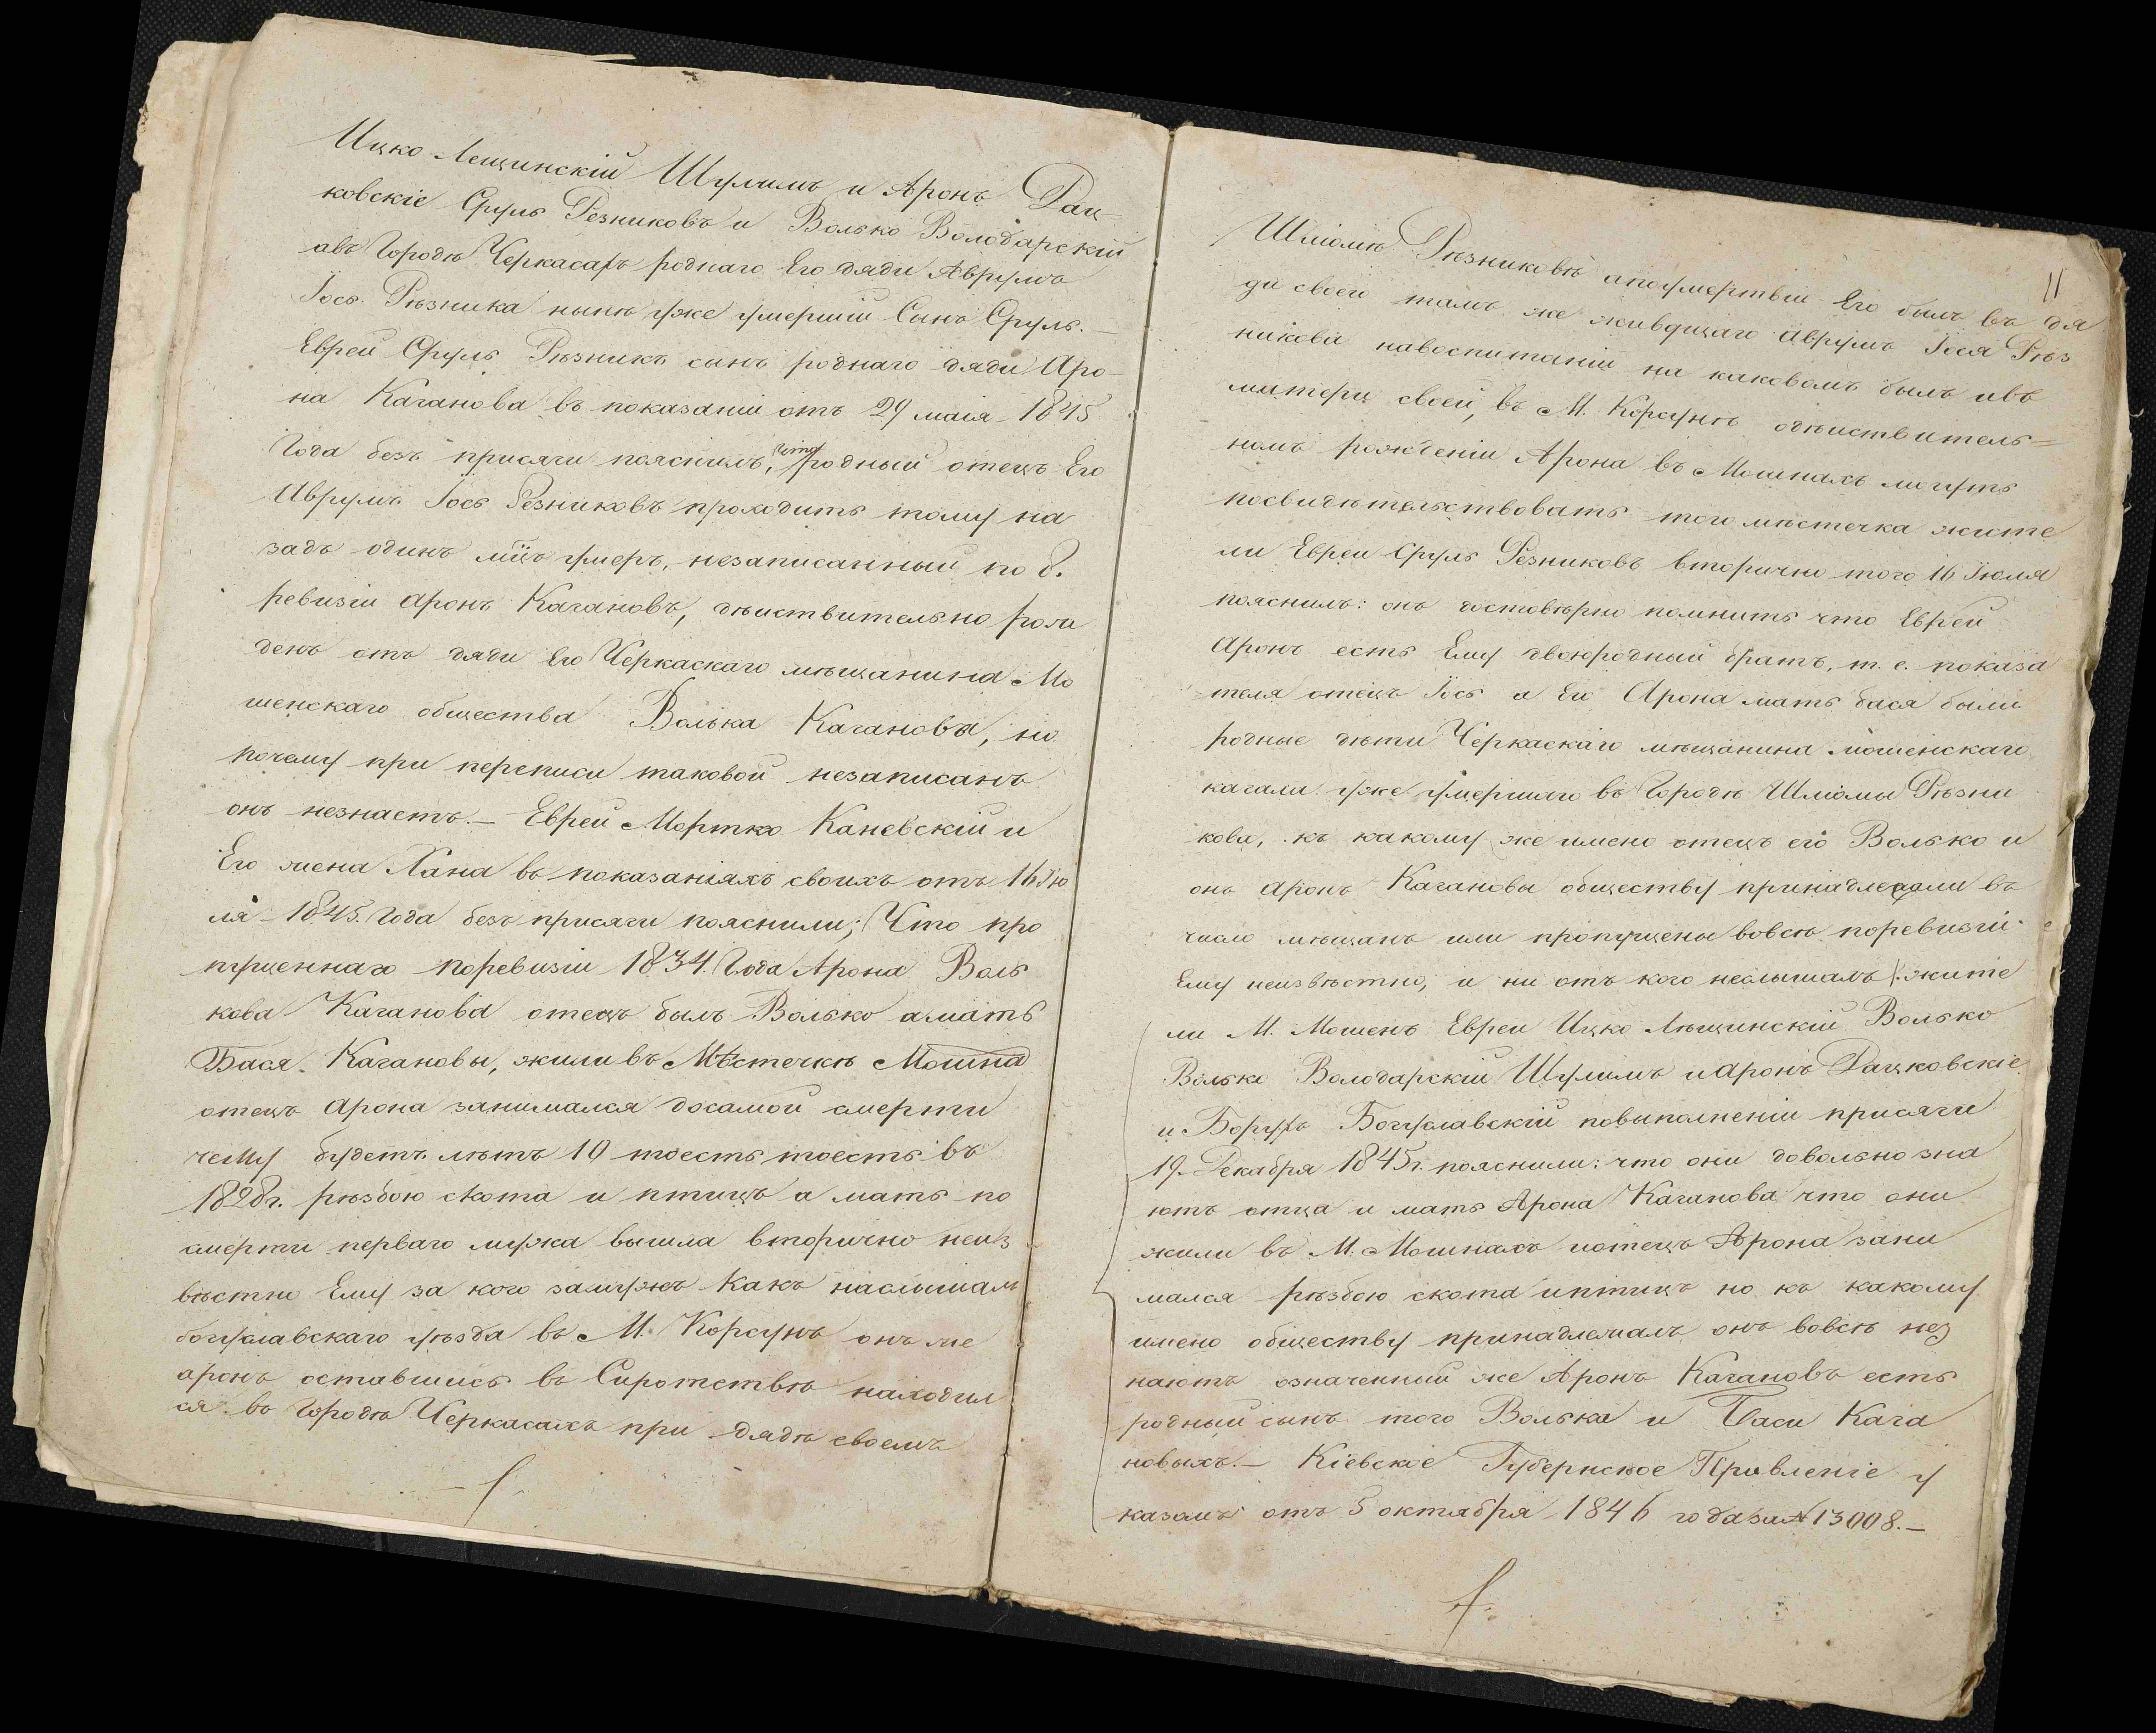 Ицко Лещинскій Шулимъ и Аронъ Дац-
ковскіе Сруль Резниковъ и Волько Володарскій
авъ Городѣ Черкасахъ роднаго Его дяди Аврумъ
Іось Рѣзника нынѣ уже умершій Сынъ Сруль.—
Еврей Сруль Рѣзникъ сынъ роднаго дяди Аро-
на Каганова въ показаніи отъ 29 маія 1845
Года безъ присяги пояснилъ, что родный отецъ Его
Аврумъ Іось Резниковъ проходитъ тому на
задъ одинъ мцъ умеръ, незаписанный по 8.
ревизіи Аронъ Кагановъ, дѣиствительно рож
денъ отъ дяди Его Черкаскаго мѣщанина Мо
шенскаго общества Волька Каганова, но
почему при переписи таковой незаписанъ
онъ незнаетъ.— Евреи Мортко Каневскій и
Его жена Хана въ показаніяхъ своихъ отъ 16 Ію
ля 1845. Года безъ присяги пояснили; Что про
пущеннаго поревизіи 1834. Года Арона Воль
кова Каганова отецъ былъ Волько а мать
Бася Кагановы, жили въ Мѣстечкѣ Мошна
отецъ Арона занимался досамой смерти
чему будетъ лѣтъ 10 тоесть тоесть въ
1828г. рѣзбою скота и птицъ а мать по
смерти перваго мужа вышла вторично неиз
вѣстно Ему за кого замужъ какъ наслышалъ
богуславскаго уѣзда въ М. Корсунъ онъ же
аронъ оставшись въ Сиротствѣ находил
ся въ Городѣ Черкасахъ при дядѣ своемъ
11
Шліомѣ Рѣзниковѣ апоумертвіи Его былъ въ дя
ди своего тамъ же живущаго Аврумъ Іося Рѣз
никова навоспитаніи на каковомъ былъ ивъ
матери своей, въ М. Корсунѣ одѣиствитель=
номъ рожденіи Арона въ Мошнахъ могутъ
посвидѣтельствовать того мѣстечка жите
ли Евреи Сруль Резниковъ вторично того 16 Іюля
пояснилъ: онъ достовѣрно помнитъ что Еврей
Аронъ есть Ему двоюродный братъ, т. е. показа
теля отецъ Іось а Его Арона мать бася были
родные дѣти Черкаскаго мѣщанина мошенскаго
кагала уже умершаго въ Городѣ Шліомы Рѣзни
кова, къ какому же имено отецъ его Волько и
онъ Аронъ Кагановы обществу принадлежали въ
число мѣщанъ или пропущены вовсѣ поревизіи
Ему неизвѣстно, и ни отъ кого неслышалъ жите
ли М. Мошенъ Евреи Ицко Лѣщинскій Волько
Волько Володарскій Шулимъ и Аронъ Дацковскіе
и Борухъ Богуславскій повыполненіи присяги
19 Декабря 1845г. пояснили: что они довольно зна
ютъ отца и мать Арона Каганова что они
жили въ М. Мошнахъ иотецъ Арона зани
мался рѣзбою скота иптицъ но къ какому
имено обществу принадлежалъ онъ вовсѣ нез
наютъ означенный же Аронъ Кагановъ есть
родный сынъ того Волька и Баси Кага
новыхъ.— Кіевское Губернское Правленіе у
казомъ отъ 5 октября 1846 года за № 13008.—